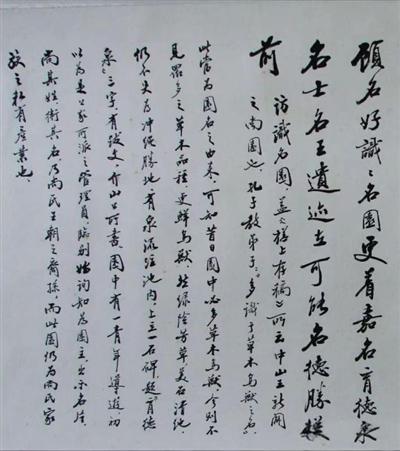 顧名好識々名園更着嘉名育德泉
名士名王遺迹在可能名德勝從
前 訪識名園，蓋《樣上存稿》所云中山王新闢
之南園也。孔子教弟子：“多識于草木鳥獸之名”，
此當為園名之由來。可知昔日園中必多草木鳥獸，今則不
見眾多之草木品種，更鮮鳥獸，然綠陰芳草美石清池，
仍不失為沖繩勝地。有泉流注池內，上立一石碑，題“育德
泉”三字，有跋文，山公所書。園中有一青年導遊，初
以為是公家所派之管理員，臨別始詢知為園主，出示名片，
尚其姓，衛其名，乃尚氏王朝之裔孫，而此園仍為尚氏家
族之私有產業也。